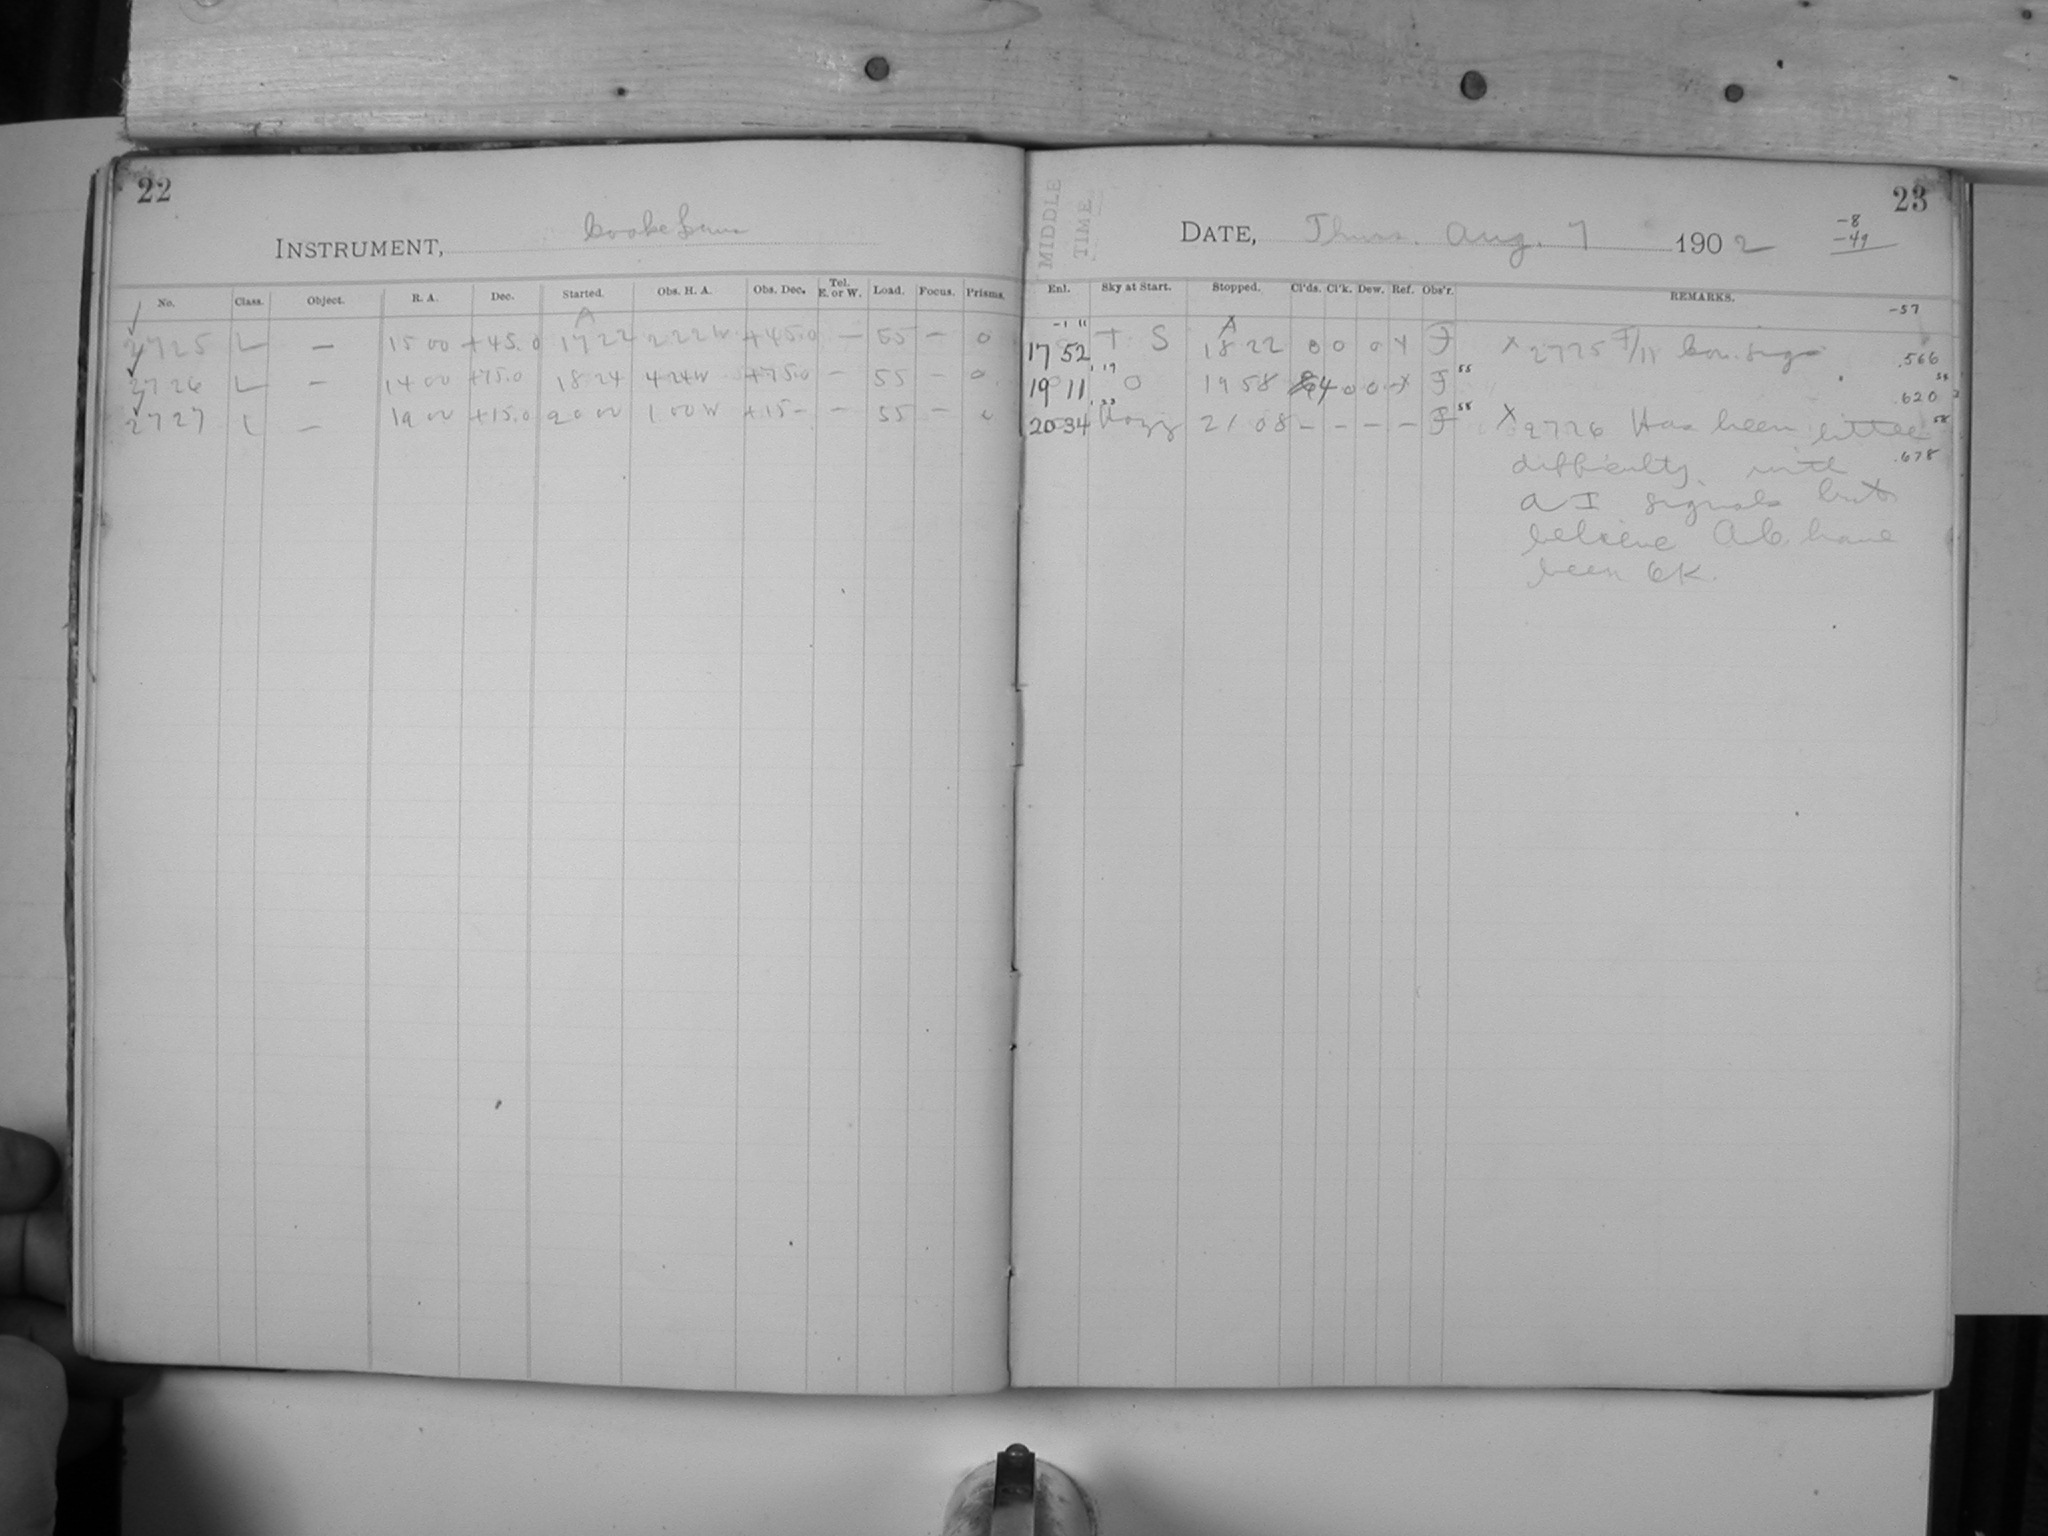 22
INSTRUMENT, Cooke Lens
No. Class. Object. R. A. Dec. Started. Obs. H. A. Obs. Dec. Tel. E. or W. Load. Focus. Prisms.
A
2725 L — 15 00 +45.0 17 22 2 22 W +45.0 — 55 — 0
2726 L — 14 00 +75.0 18 24 4 24 W +75.0 — 55 — 0
2727 L — 19 00 +15.0 20 00 1 00 W +15- — 55 — 0
23
MIDDLE
TIME
DATE, Thurs. Aug. 7 1902
-8
-49
-57
Enl. Sky at Start. Stopped. Cl'ds. Cl'k. Dew. Ref. Obs'r. REMARKS.
17 52 18 22 0 0 0 F X 2725 .566
19 11 0 19 58 0 0 F 55 .620
20 34 Hazy 21 08 — — — — F 58 X 2726 Has been little 58
difficulty with .678
signals but
believe have
been OK.